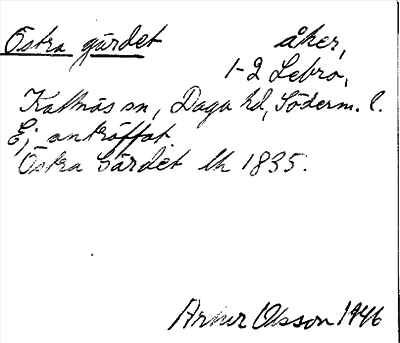 Östra gärdet åker,
1-2 Lebro,
Kattnäs sn, Daga hd, Söderm. l.
Ej anträffat.
Östra Gärdet lh 1835.
Arner Olsson 1946